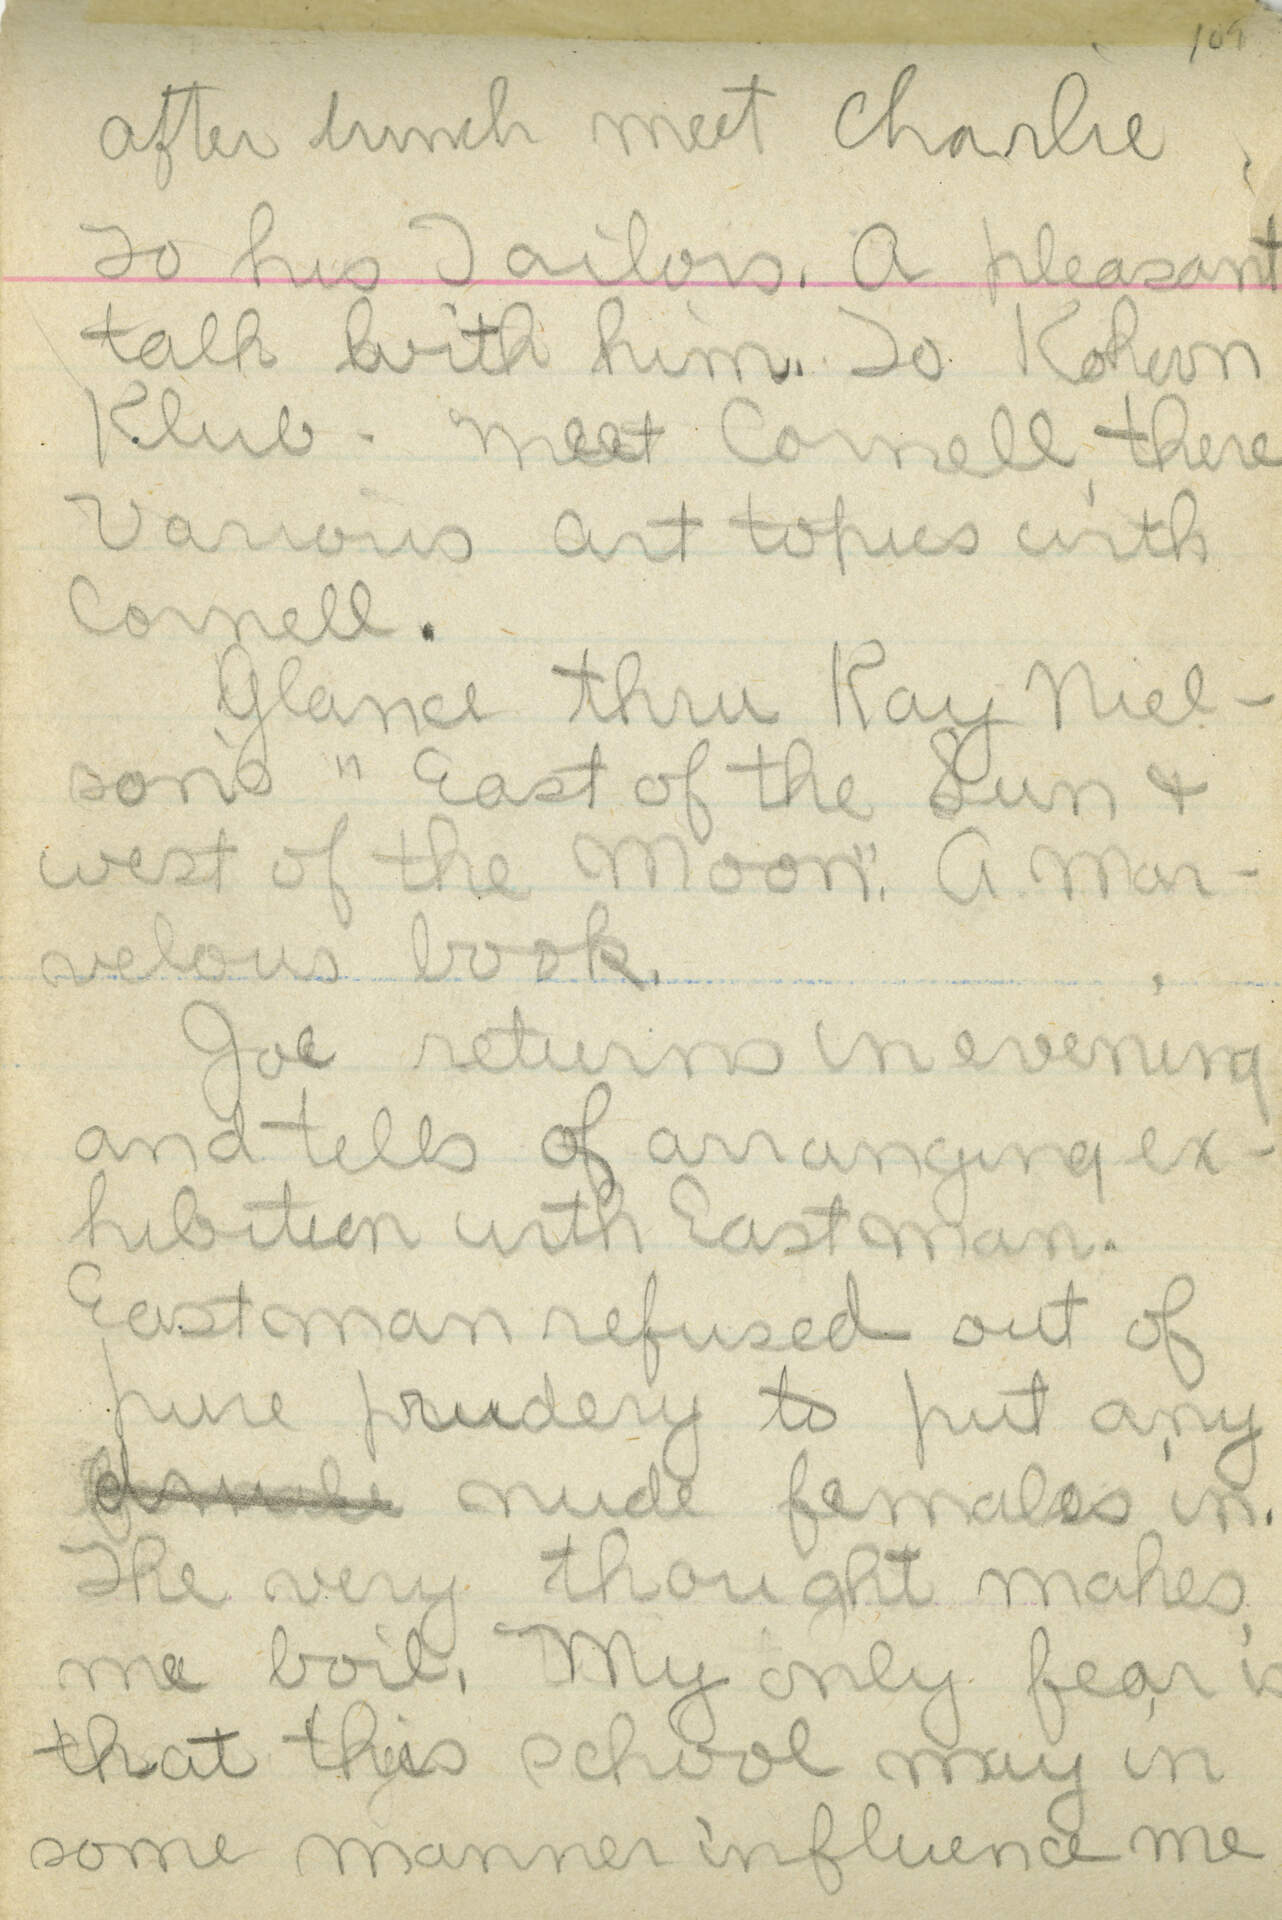 109
after lunch meet Charlie
To his Tailors. A pleasant
talk with him. To Kokoon
Klub - meet Cornell, there
Various art topics with
Cornell.
Glance thru Kay Niel-
son's "East of the Sun &
west of the Moon". A mar-
velous book.
Joe returns in evening
and tells of arranging ex-
hibition with Eastman.
Eastman refused out of
pure prudery to put any
nude females in.
The very thought makes
me boil. My only fear is
that this school may in
some manner influence me